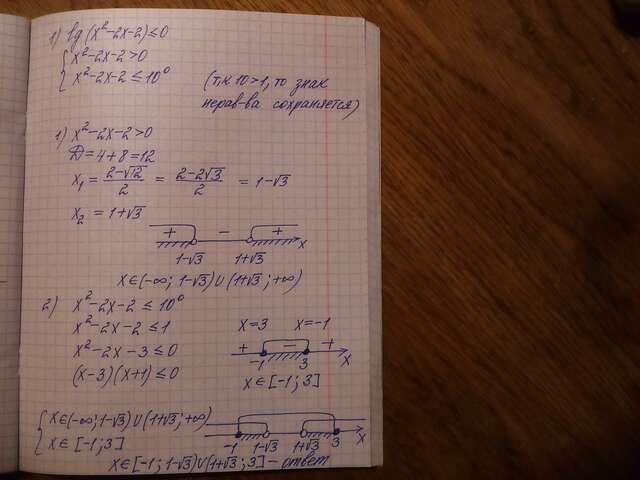 1) lg (x²-2x-2) ≤ 0
{ x²-2x-2>0
{ x²-2x-2 ≤ 10⁰ (т.к 10>1, то знак
нерав-ва сохраняется)
1) x²-2x-2>0
D=4+8=12
x₁ = (2-√12)/2 = (2-2√3)/2 = 1-√3
x₂ = 1+√3
+ - + x
1-√3 1+√3
x∈(-∞; 1-√3)∪(1+√3; +∞)
2) x²-2x-2 ≤ 10⁰
x²-2x-2 ≤ 1 x=3 x=-1
x²-2x-3 ≤ 0 + - + x
-1 3
(x-3)(x+1) ≤ 0 x∈[-1; 3]
{ x∈(-∞; 1-√3)∪(1+√3; +∞)
{ x∈[-1; 3] -1 1-√3 1+√3 3 x
x∈[-1; 1-√3)∪(1+√3; 3] - ответ